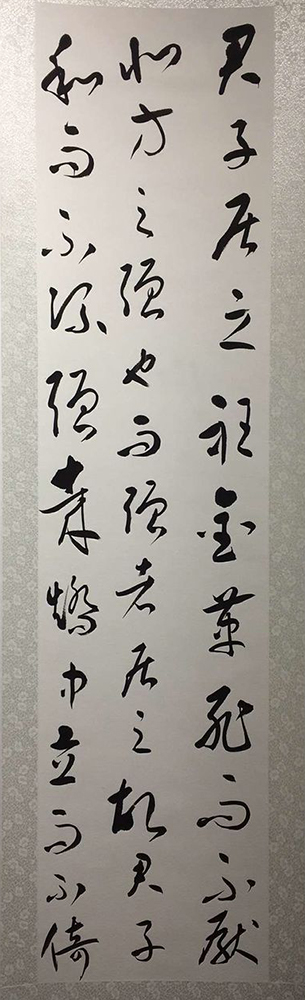 君子居之衽金革死而不厭
北方之强也而强者居之故君子
和而不流强哉矯中立而不倚